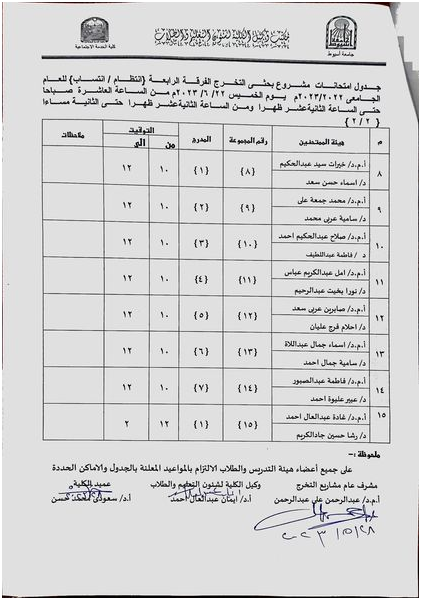 مكتب وكيل الكلية لشئون التعليم والطلاب
جامعة أسيوط
كلية الخدمة الاجتماعية
جدول امتحانات مشروع بحثى التخرج الفرقة الرابعة {انتظام / انتساب} للعام
الجامعى ٢٠٢٣/٢٠٢٢م يوم الخميس ٢٠٢٣/٦/٢٢م من الساعة العاشرة صباحا
حتى الساعة الثانية عشر ظهرا ومن الساعة الثانية عشر ظهرا حتى الثانية مساءا
{ ٢ / ٢ }
م هيئة الممتحنين رقم المجموعة المدرج التوقيت ملاحظات
من الى
٨ أ.م.د/ خيرات سيد عبدالحكيم {٨} {١} ١٠ ١٢
د/ اسماء حسن سعد
٩ أ.م.د/ محمد جمعة على {٩} {٢} ١٠ ١٢
د/ سامية عربى محمد
١٠ أ.م.د/ صلاح عبدالحكيم احمد {١٠} {٣} ١٠ ١٢
د / فاطمة عبداللطيف
١١ أ.م.د/ امل عبدالكريم عباس {١١} {٤} ١٠ ١٢
د/ نورا بخيت عبدالرحيم
١٢ أ.م.د/ صابرين عربى سعد {١٢} {٥} ١٠ ١٢
د/ احلام فرج عليان
١٣ أ.م.د/ اسماء جمال عبداللاة {١٣} {٦} ١٠ ١٢
د/ سامية جمال احمد
١٤ أ.م.د/ فاطمة عبدالصبور {١٤} {٧} ١٠ ١٢
د/ عبير عليوة احمد
١٥ أ.م.د/ غادة عبدالعال احمد {١٥} {١} ١٢ ٢
د/ رشا حسين جادالكريم
ملحوظة :-
على جميع أعضاء هيئة التدريس والطلاب الالتزام بالمواعيد المعلنة بالجدول والاماكن المحددة
مشرف عام مشاريع التخرج وكيل الكلية لشئون التعليم والطلاب عميد الكلية
أ.م.د/ عبدالرحمن على عبدالرحمن أ.د/ ايمان عبدالعال احمد أ.د/ سعودى محمد حسن
٢٠٢٣/٥/٢٨